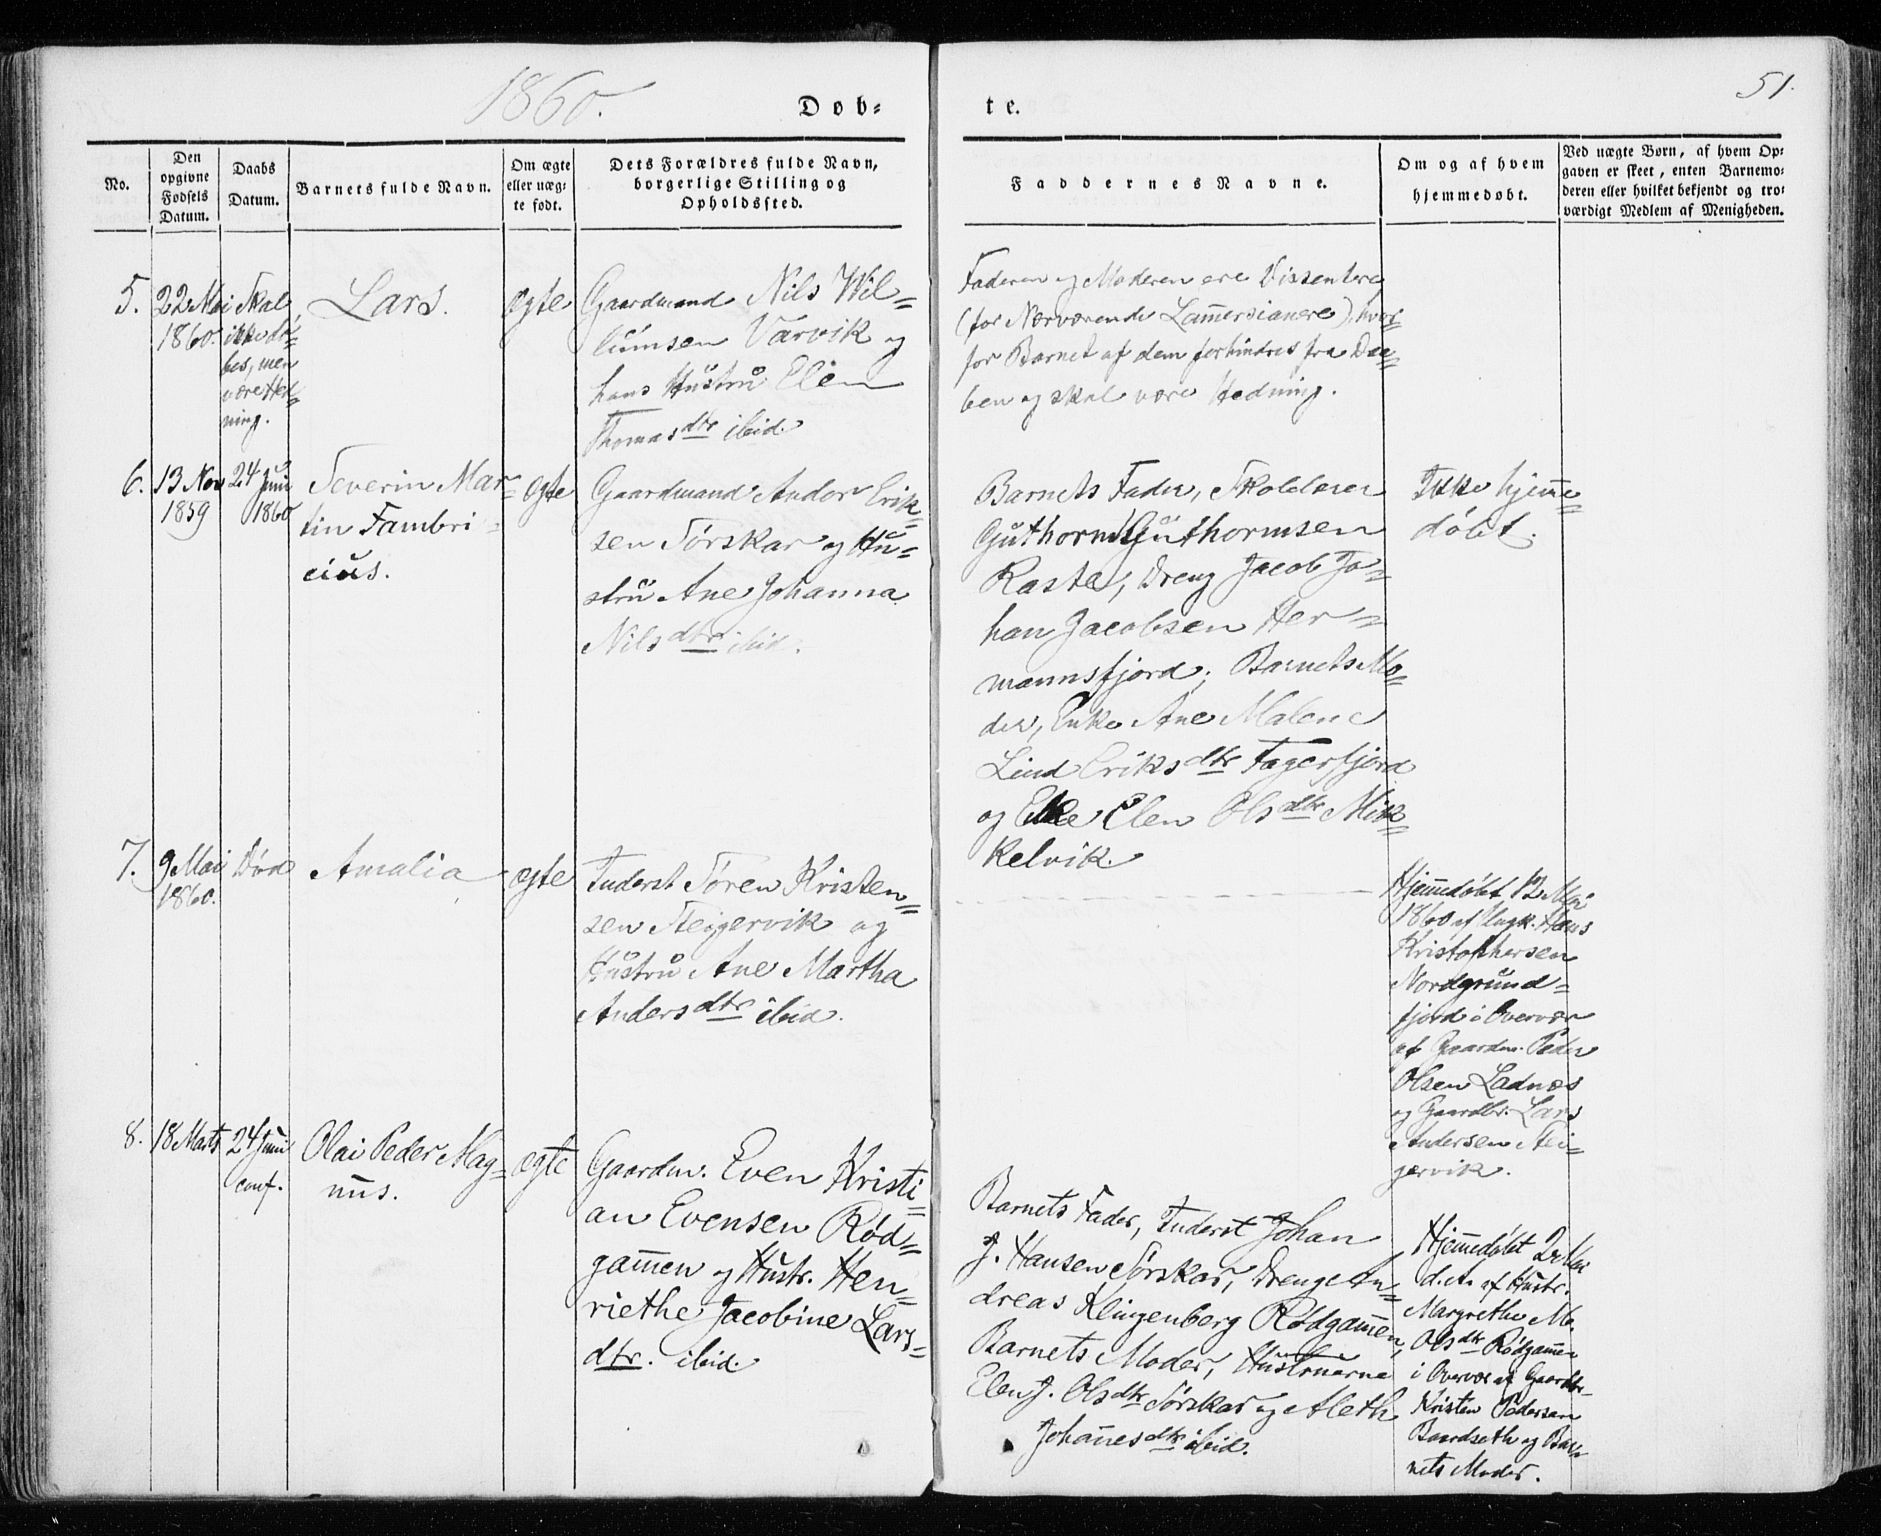 1860.
Døb-
te.
51.
No.
Den
opgivne
Fødsels
Datum.
Daabs
Datum.
Barnets fulde Navn.
Om ægte
eller uæg-
te født.
Dets Forældres fulde Navn,
borgerlige Stilling og
Opholdssted.
Faddernes Navne.
Om og af hvem
hjemmedøbt.
Ved uægte Børn, af hvem Op-
gaven er skeet, enten Barnemo-
deren eller hvilket bekjendt og tro-
værdigt Medlem af Menigheden.
5.
22 Mai
1860.
Skal
ikke dø-
bes, men
være Hed-
ning.
Lars.
ægte
Gaardmand Nils Wil-
lumsen Varvik og
hans Hustru Elen
Thomasdtr ibid.
Faderen og Moderen ere Dissentere
(for Nærværende Lam̄ersianere), hvor-
for Barnet af dem forhindres fra Daa-
ben og skal være Hedning.
6.
13 Nov
1859
24 Juni
1860
Severin Mar-
tin Fambri-
cius.
ægte
Gaardmand Andor Erik-
sen Sørskar og Hu-
stru Ane Johanna
Nilsdtr ibid.
Barnets Fader, Skolelærer
Guthorm Guthormsen
Rasta, Dreng Jacob Jo-
han Jacobsen Her-
mannsfjord; Barnets Mo-
der, Enke Ane Malene
Lind Eriksdtr Fagerfjord
og Enke Elen Olsdtr Mik-
kelvik.
Ikke hjem̄e-
døbt.
7.
9 Mai
1860.
Død
Amalia
ægte
Inderst Søren Kristen-
sen Steigervik og
Hustru Ane Martha
Andersdtr ibid.
Hjem̄edøbt 12 Mai
1860 af Ungk. Hans
Kristophersen
Nordgrund-
fjord i Overvær
af Gaardm. Peder
Olsen Ladnæs
og Gaardbr. Lars
Andersen Stei-
gervik.
8.
18 Marts
24 Juni
conf.
Olai Peder Mag-
nus.
ægte
Gaardm. Even Kristi-
an Evensen Rød-
gam̄en og Hustr. Hen-
riethe Jacobine Lars-
dtr. ibid.
Barnets Fader, Inderst Johan
J. Hansen Sørskar, Dreng An-
dreas Klingenberg Rødgam̄en,
Barnets Moder, Hustruerne
Elen J. Olsdtr Sørskar og Aleth
Johan̄esdtr ibid.
Hjem̄edøbt 2 Mai
d. A. af Hustr.
Margrethe M.
Olsdtr Rødgam̄en
i Overvær af Gaardbr.
Kristen Pedersen
Baardseth og Bar-
nets Moder.